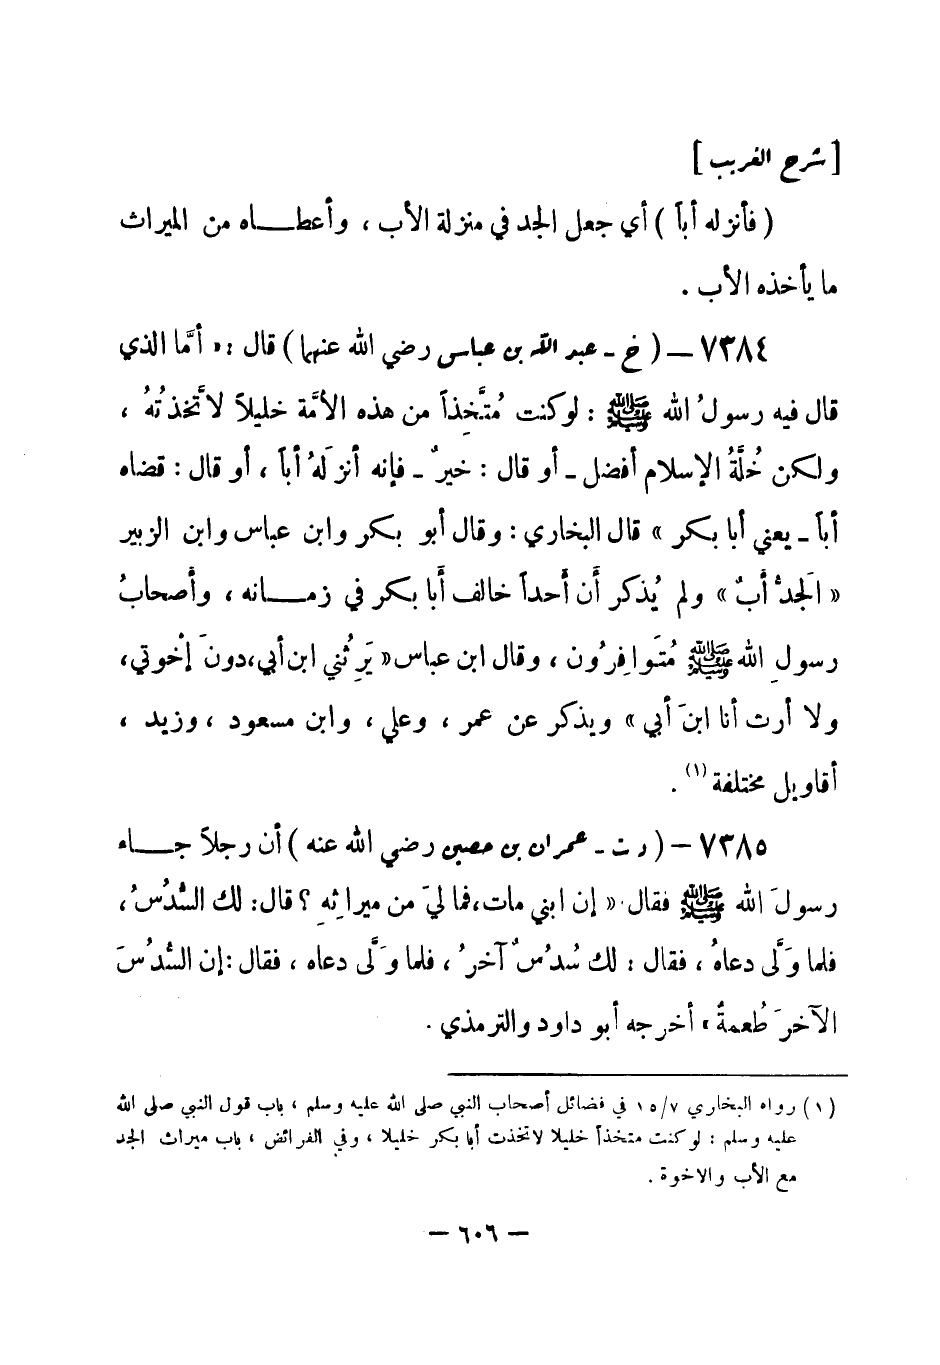 [ شرح الغريب ]
( فأنزله أباً ) أي جعل الجد في منزلة الأب ، وأعطــاه من الميراث
ما يأخذه الأب .
٧٣٨٤ – ( خ ـ عبد الله بن عباس رضي الله عنهما ) قال : « أمَّا الذي
قال فيه رسولُ الله ﷺ : لو كنت مُتَّخِذاً من هذه الأمَّة خليلاً لاتَّخذتُهُ ،
ولكن خُلَّةُ الإسلام أفضل ـ أو قال : خيرٌ ـ فإنه أنزَلهُ أباً ، أو قال : قضاه
أباً ـ يعني أبا بكر » قال البخاري : وقال أبو بكر وابن عباس وابن الزبير
« الجَدُّ أبٌ » ولم يُذكر أن أحداً خالف أبا بكر في زمــانه ، وأصحابُ
رسولِ الله ﷺ مُتَوافِرُون ، وقال ابن عباس « يَرِثُني ابن أبي ، دونَ إخْوتي ،
ولا أرث أنا ابنَ أبي » ويذكر عن عمر ، وعلي ، وابن مسعود ، وزيد ،
أقاويل مختلفة (١) .
٧٣٨٥ – ( د ت ـ عمران بن حصين رضي الله عنه ) أن رجلاً جــاء
رسولَ الله ﷺ فقال : « إن ابني مات ، فما ليَ من ميراثِهِ ؟ قال : لك السُّدُسُ ،
فلما وَلَّى دعاهُ ، فقال : لك سُدُسٌ آخرُ ، فلما وَلَّى دعاه ، فقال : إن السُّدُسَ
الآخرَ طُعمةٌ » أخرجه أبو داود والترمذي .
(١) رواه البخاري ٧/١٥ في فضائل أصحاب النبي صلى الله عليه وسلم ، باب قول النبي صلى الله
عليه وسلم : لو كنت متخذاً خليلا لاتخذت أبا بكر خليلا ، وفي الفرائض ، باب ميراث الجد
مع الأب والاخوة .
– ٦٠٦ –